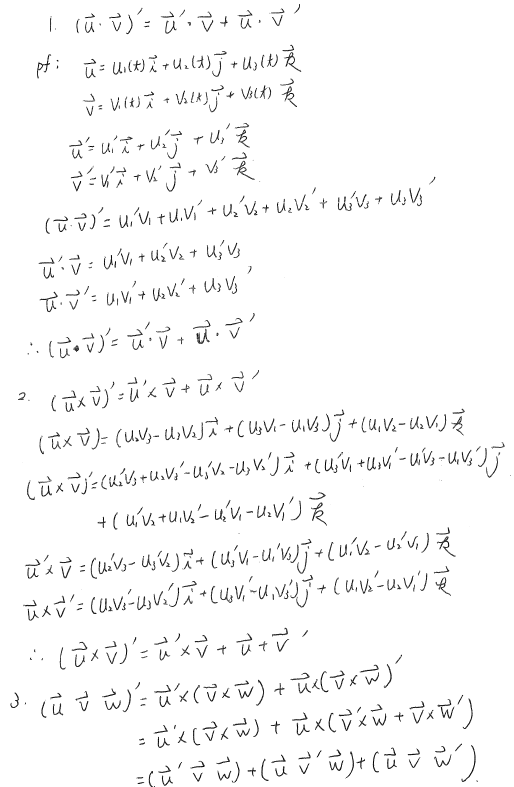 1. (u⃗ · v⃗)′ = u⃗′ · v⃗ + u⃗ · v⃗′
pf: u⃗ = u₁(t) i⃗ + u₂(t) j⃗ + u₃(t) k⃗
v⃗ = v₁(t) i⃗ + v₂(t) j⃗ + v₃(t) k⃗
u⃗′ = u₁′ i⃗ + u₂′ j⃗ + u₃′ k⃗
v⃗′ = v₁′ i⃗ + v₂′ j⃗ + v₃′ k⃗
(u⃗·v⃗)′ = u₁′v₁ + u₁v₁′ + u₂′v₂ + u₂v₂′ + u₃′v₃ + u₃v₃′
u⃗′·v⃗ = u₁′v₁ + u₂′v₂ + u₃′v₃
u⃗·v⃗′ = u₁v₁′ + u₂v₂′ + u₃v₃′
∴ (u⃗·v⃗)′ = u⃗′·v⃗ + u⃗·v⃗′
2. (u⃗×v⃗)′ = u⃗′×v⃗ + u⃗×v⃗′
(u⃗×v⃗) = (u₂v₃ - u₃v₂) i⃗ + (u₃v₁ - u₁v₃) j⃗ + (u₁v₂ - u₂v₁) k⃗
(u⃗×v⃗)′ = (u₂′v₃ + u₂v₃′ - u₃′v₂ - u₃v₂′) i⃗ + (u₃′v₁ + u₃v₁′ - u₁′v₃ - u₁v₃′) j⃗
+ (u₁′v₂ + u₁v₂′ - u₂′v₁ - u₂v₁′) k⃗
u⃗′×v⃗ = (u₂′v₃ - u₃′v₂) i⃗ + (u₃′v₁ - u₁′v₃) j⃗ + (u₁′v₂ - u₂′v₁) k⃗
u⃗×v⃗′ = (u₂v₃′ - u₃v₂′) i⃗ + (u₃v₁′ - u₁v₃′) j⃗ + (u₁v₂′ - u₂v₁′) k⃗
∴ (u⃗×v⃗)′ = u⃗′×v⃗ + u⃗+v⃗′
3. (u⃗ v⃗ w⃗)′ = u⃗′×(v⃗×w⃗) + u⃗×(v⃗×w⃗)′
= u⃗′×(v⃗×w⃗) + u⃗×(v⃗′×w⃗ + v⃗×w⃗′)
= (u⃗′ v⃗ w⃗) + (u⃗ v⃗′ w⃗) + (u⃗ v⃗ w⃗′)